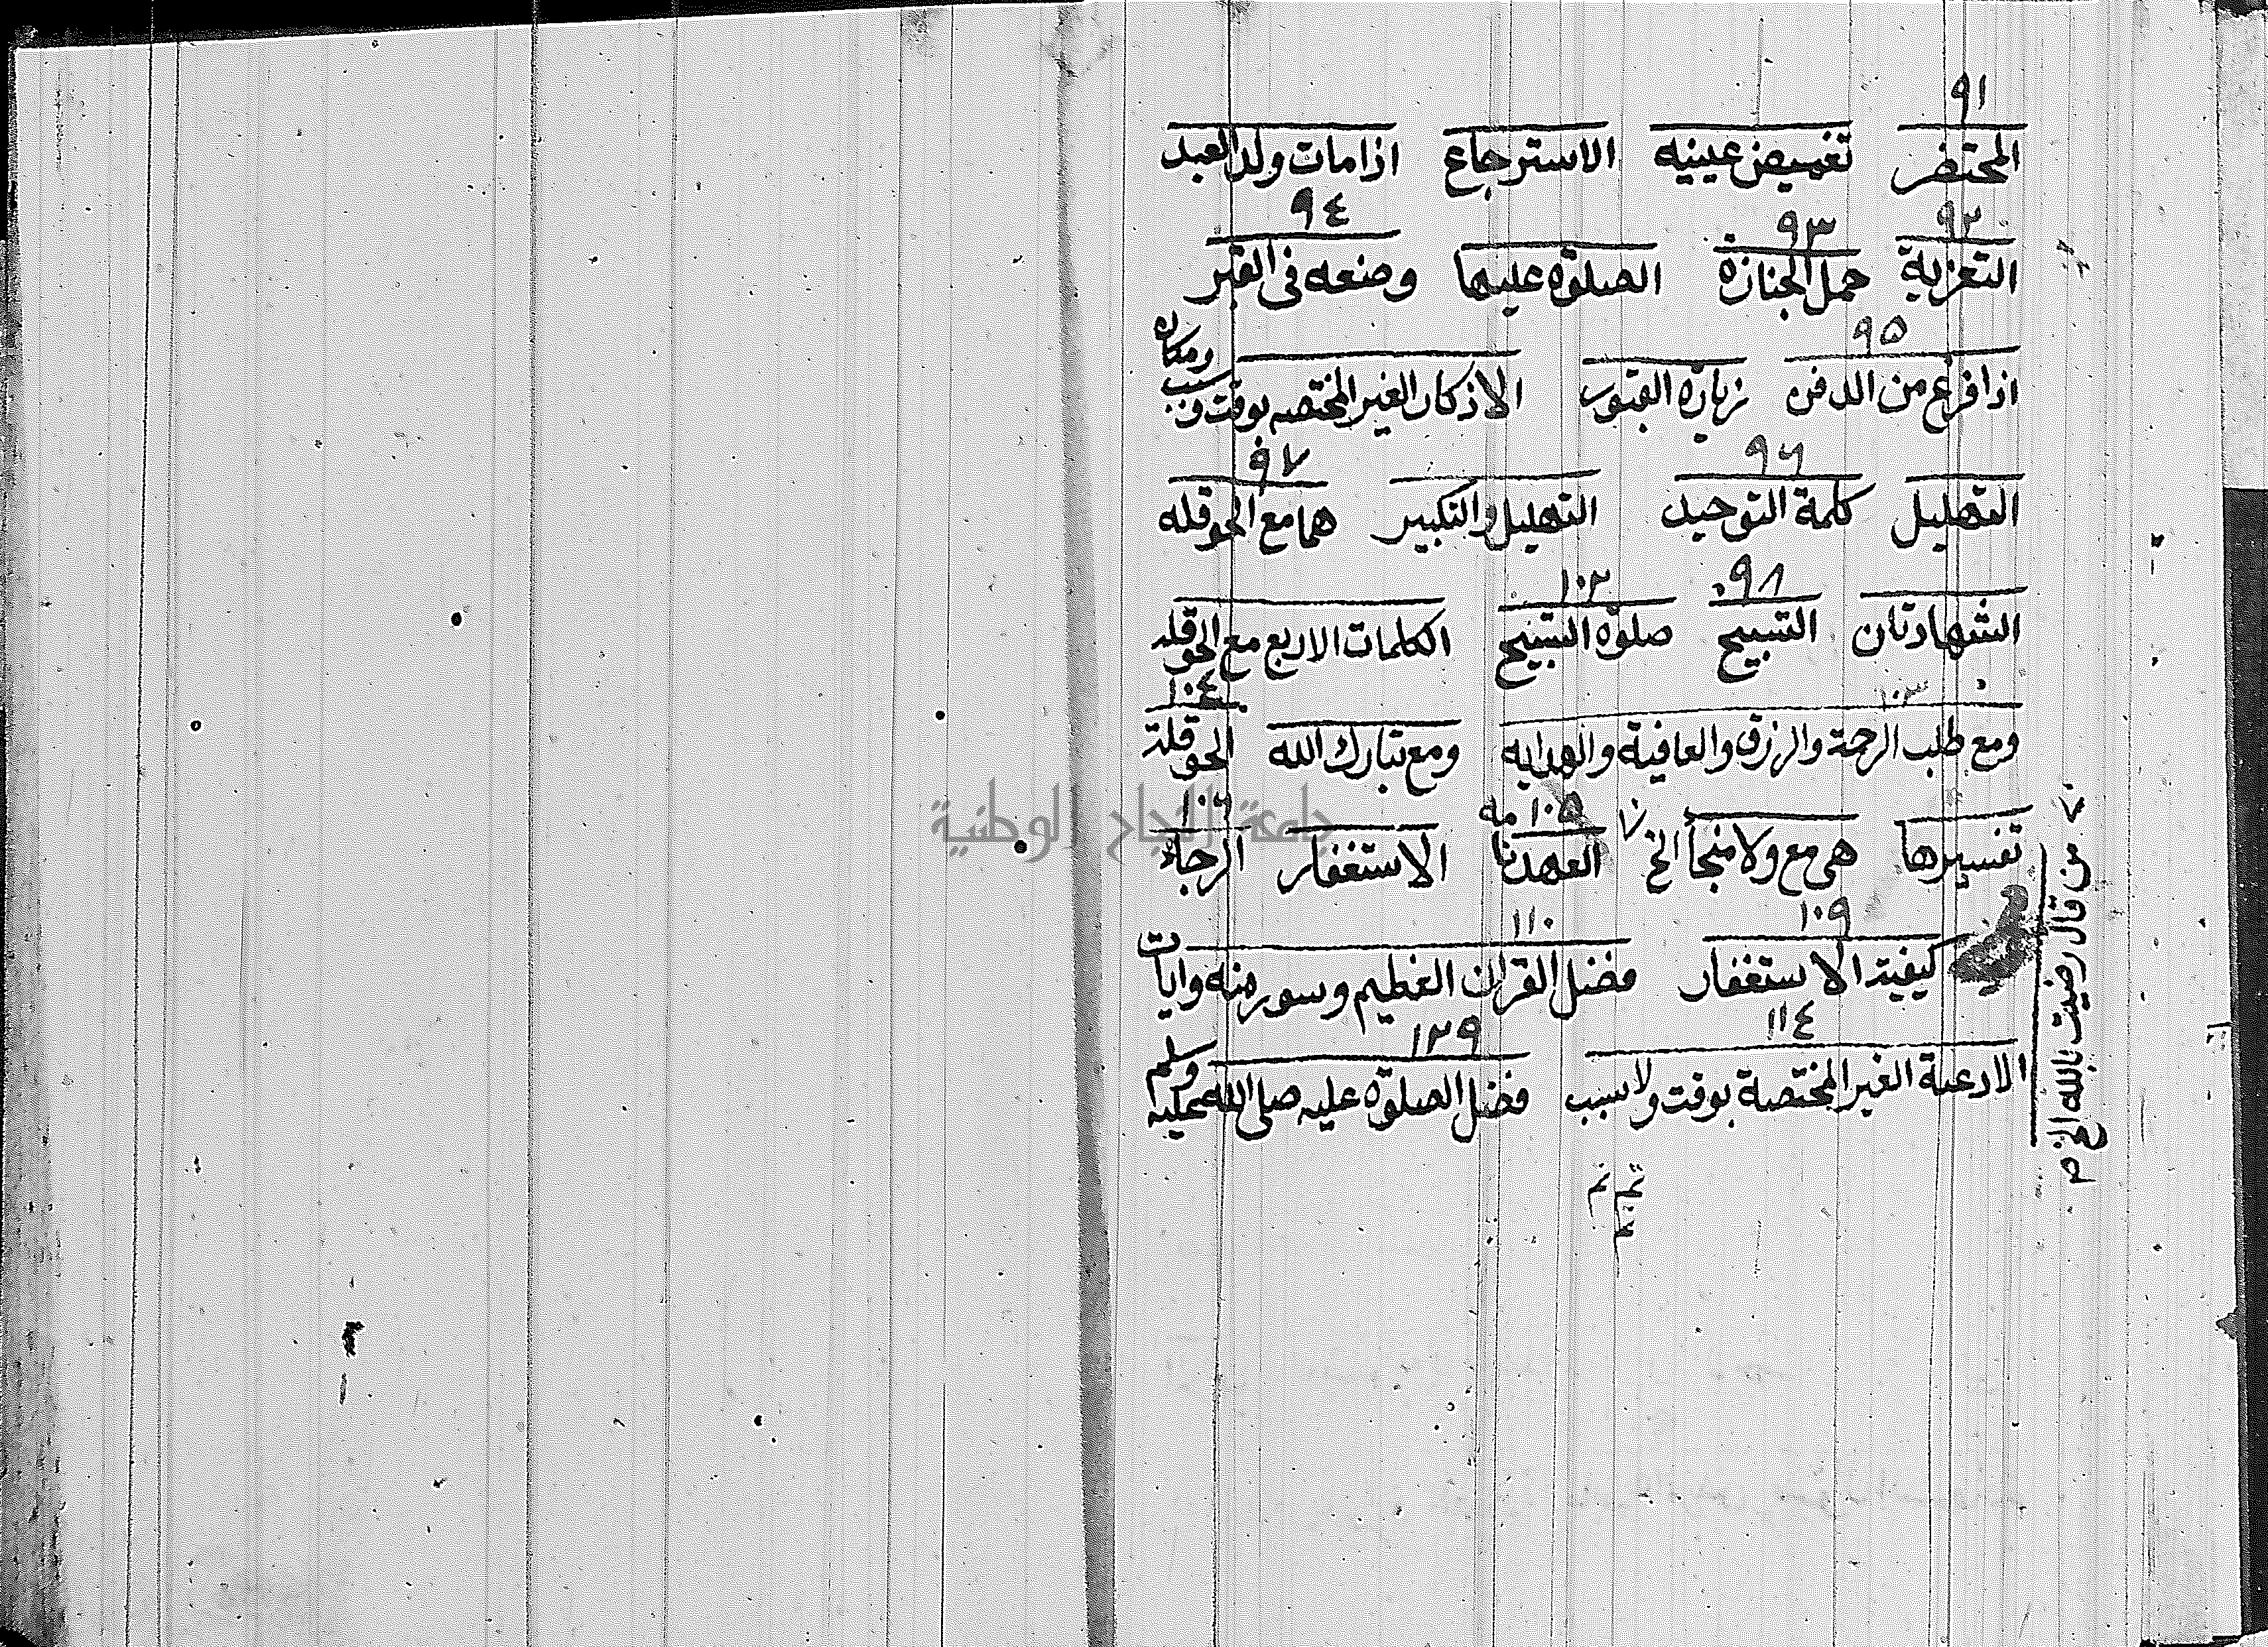 ٩١
المحتضر تغميض عينيه الاسترجاع اذا مات ولد العبد
٩٢ ٩٣ ٩٤
التعزية حمل الجنازة الصلوة عليها وضعه فى القبر
٩٥
اذا فرغ من الدفن زيارة القبور الاذكار الغير المختصه بوقت وسبب ومكان
٩٦ ٩٧
التهليل كلمة التوحيد التهليل والتكبير هما مع الحوقله
٩٨ ١٠٢
الشهادتان التسبيح صلوة التسبيح الكلمات الاربع مع الحوقله
١٠٣ ١٠٤
ومع طلب الرحمة والرزق والعافية والهدايه ومع تبارك الله الحوقلة
١٠٥ ١٠٦
تفسيرها هى مع ولا منجأ الخ الاستغفار الرجاء
من قال رضيت بالله الخ ص
١٠٩ ١١٠
كيفية الاستغفار فضل القران العظيم وسور منه وايات
١١٤ ١٢٩
الادعية الغير المختصة بوقت ولا سبب فضل الصلوة عليه صلى الله عليه وسلم
تم تم
تم
جامعة النجاح الوطنية